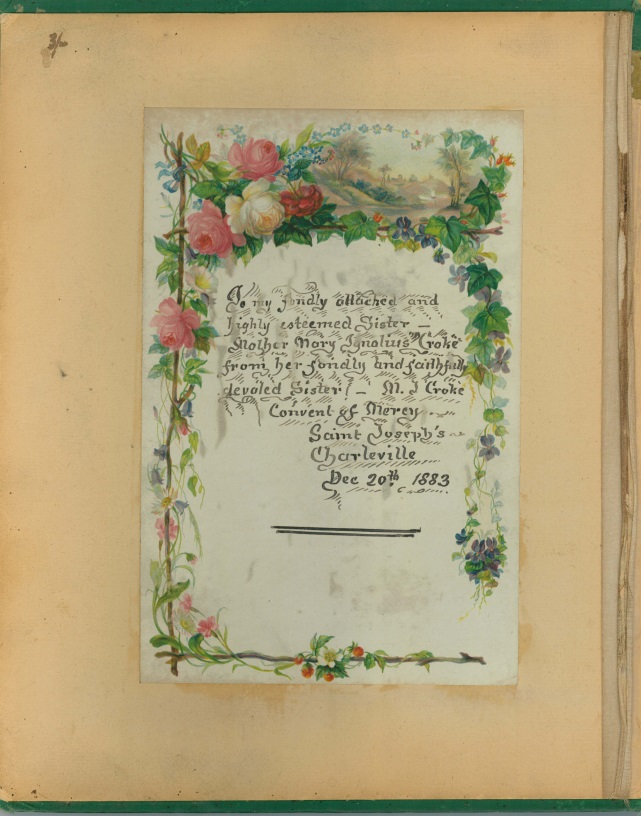 3/-
To my fondly attached and
highly esteemed Sister –
Mother Mary Ignatius Croke
from her fondly and faithfully
devoted Sister! – M. J Croke
Convent of Mercy
Saint Joseph's
Charleville
Dec 20th 1883